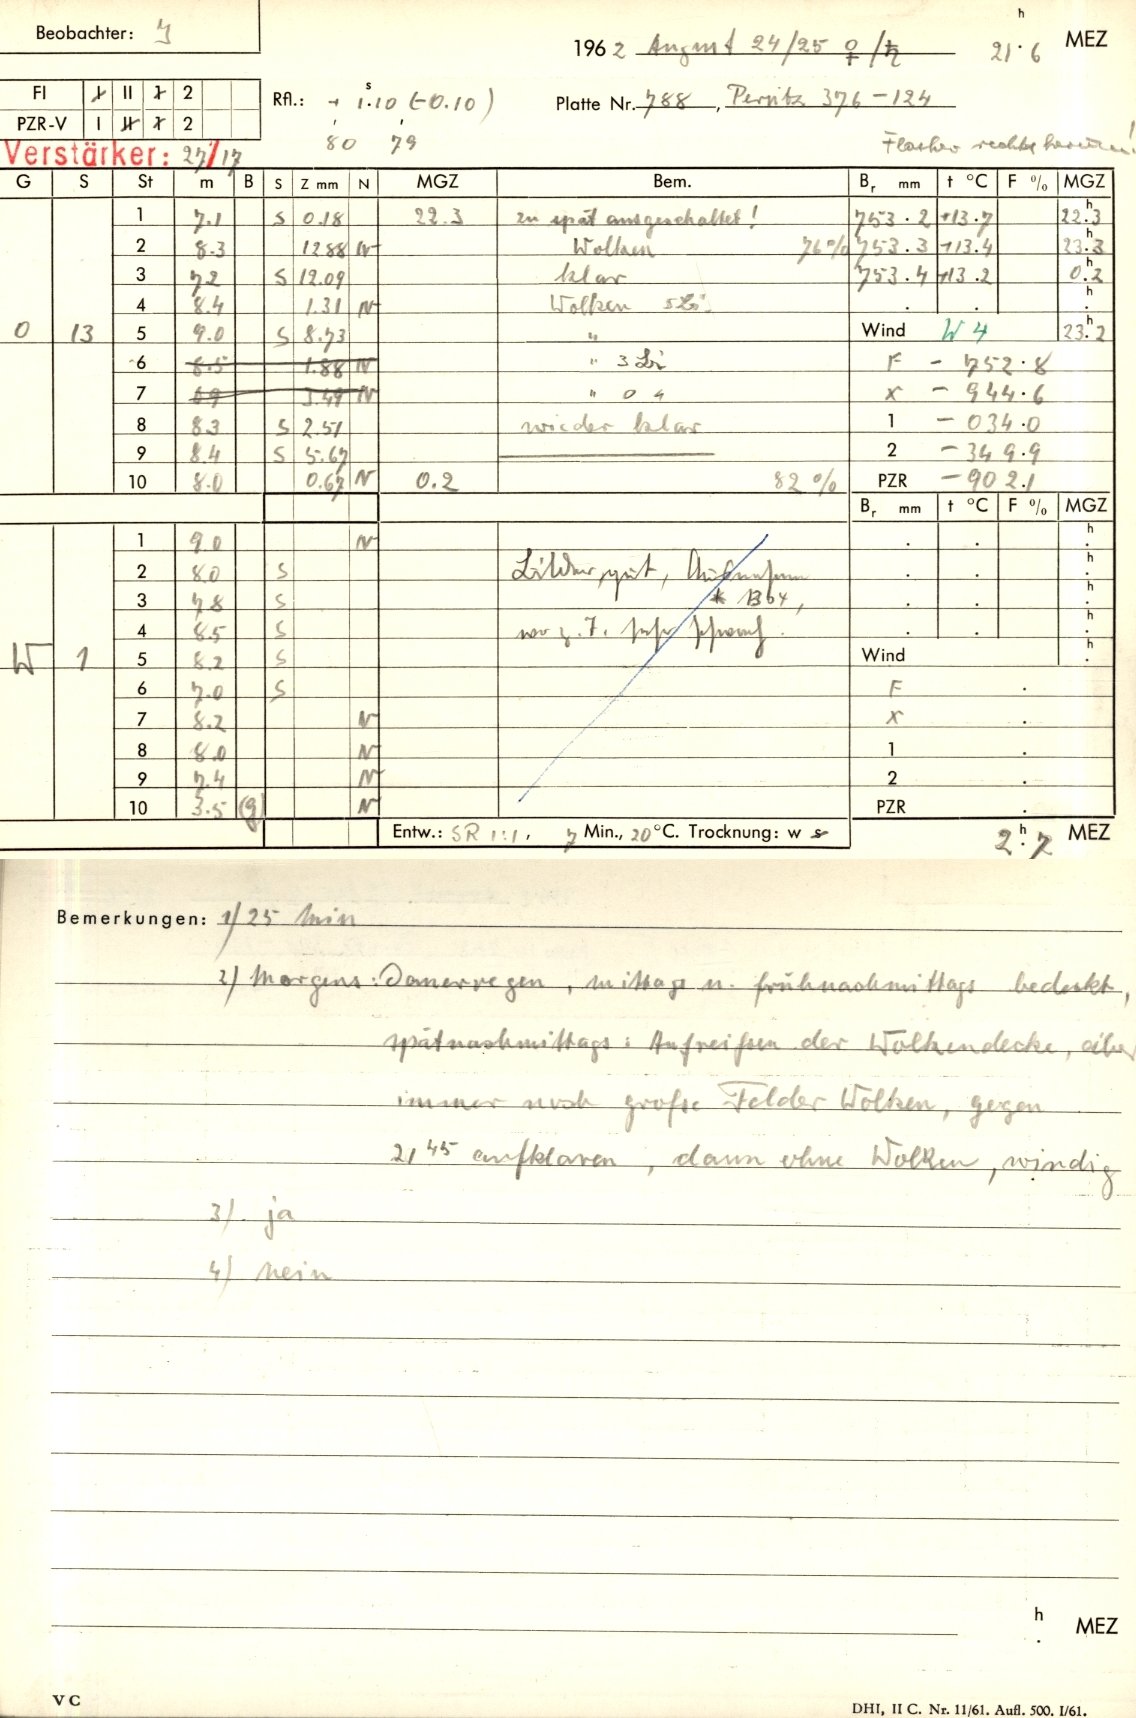 Beobachter: J
1962 August 24/25 ♀/♄ 21h.6 MEZ
FI I II 1 2
PZR-V I II 1 2
Rfl.: + 1s.10 (-0.10)
80 79
Platte Nr. 788, Perutz 376-124
Verstärker: 27/17
G S St m B S Z mm N MGZ Bem. Br mm t °C F % MGZ
1 7.1 S 0.18 22.3 zu spät ausgeschaltet! 753.2 +13.7 22h.3
2 8.3 12.88 N Wolken 76% 753.3 +13.4 23h.3
3 7.2 S 12.09 klar 753.4 +13.2 0h.2
4 8.4 1.31 N Wolken h
0 13 5 9.0 S 8.73 " Wind W 4 23h.2
6 8.5 1.88 N " 3 F - 752.8
7 8.9 3.49 N " 0 " x - 944.6
8 8.3 S 2.51 wieder klar 1 - 034.0
9 8.4 S 5.67 2 - 349.9
10 8.0 0.67 N 0.2 82% PZR - 902.1
Br mm t °C F % MGZ
1 9.0 N h
2 8.0 S Bilder gut, Aufnahme h
3 7.8 S * B64, h
4 8.5 S wo z.T. sehr schwach. h
W 1 5 8.2 S Wind h
6 7.0 S F
7 8.2 N x
8 8.0 N 1
9 7.4 N 2
10 3.5 (g) N PZR
Entw.: SR 1:1, 7 Min., 20°C. Trocknung: w s 2h.7 MEZ
Bemerkungen: 1) 25 Min
2) Morgens: Dauerregen, mittags u. frühnachmittags bedeckt,
spätnachmittags: Aufreißen der Wolkendecke, aber
immer noch große Felder Wolken, gegen
21 45 aufklaren, dann ohne Wolken, windig
3) ja
4) nein
h MEZ
V C
DHI, II C. Nr. 11/61. Aufl. 500. I/61.